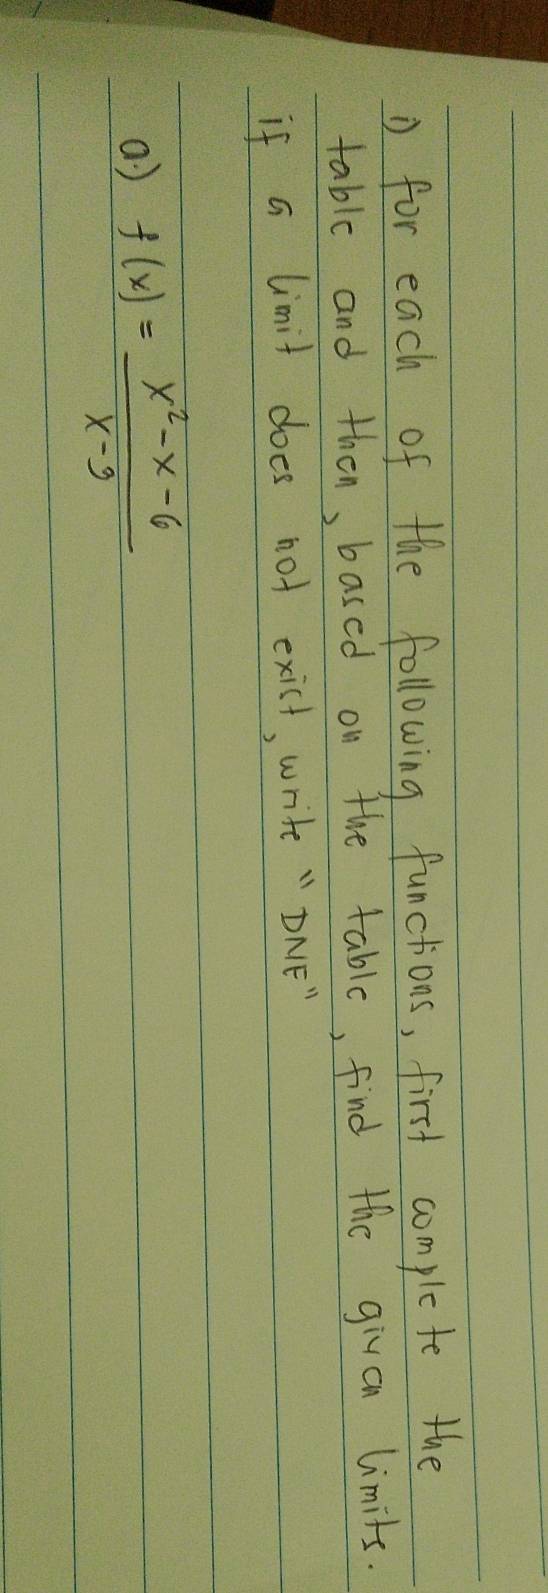 1) for each of the following functions, first complete the
table and then, based on the table, find the given limits.
if a limit does not exist, write "DNE"
a.) f(x) = x² - x - 6
x - 9